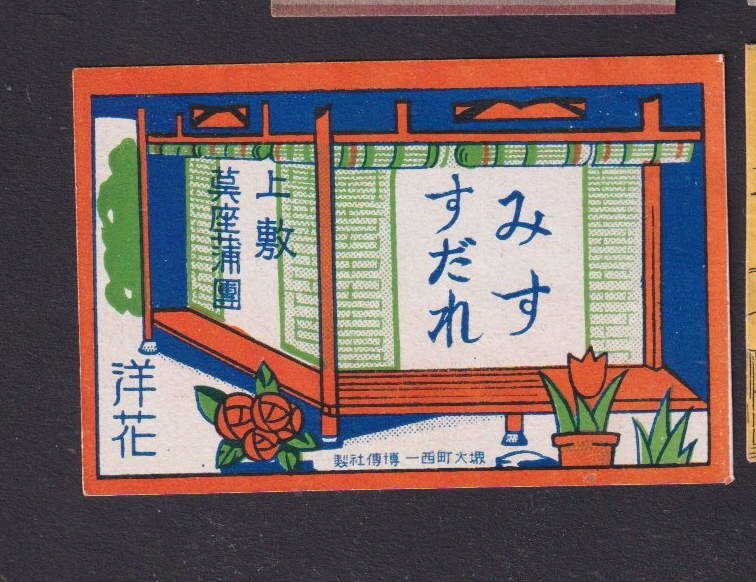 みす
すだれ
上敷
茣座蒲團
洋花
堺大町西一 博傳社製